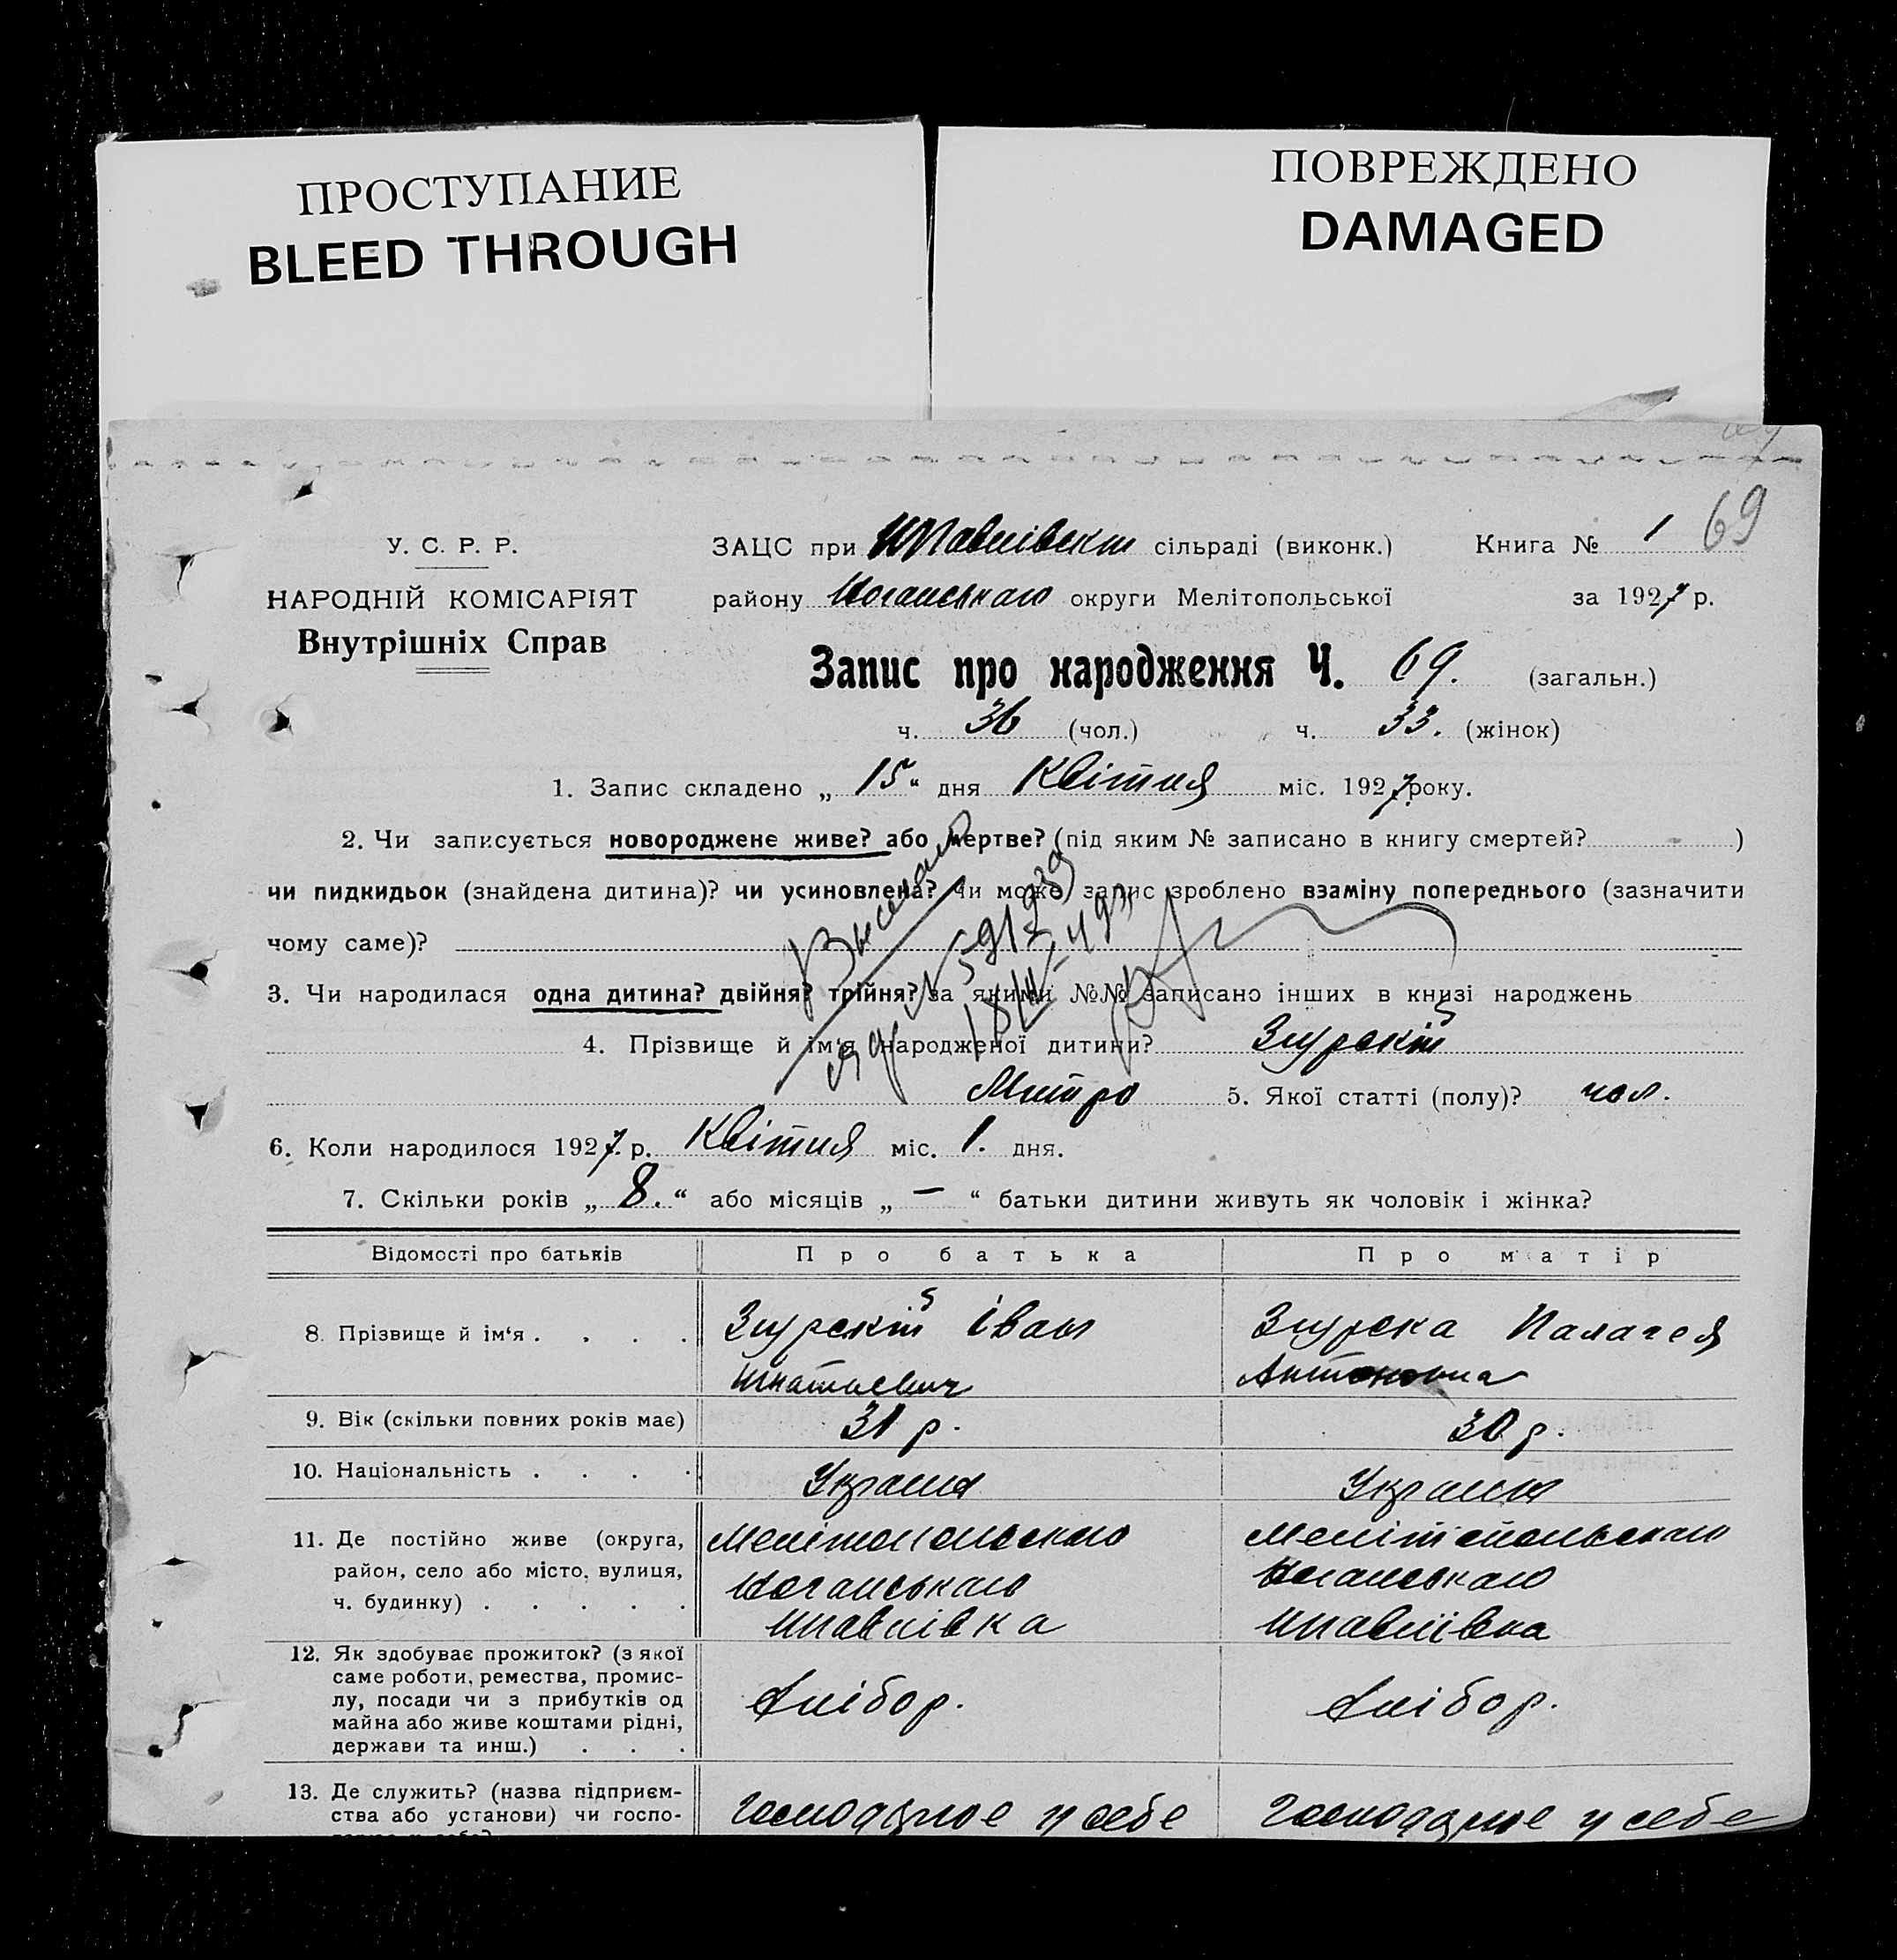 ПРОСТУПАНИЕ
BLEED THROUGH
ПОВРЕЖДЕНО
DAMAGED
69
У. С. Р. Р.
НАРОДНІЙ КОМІСАРІЯТ
Внутрішніх Справ
ЗАЦС при сільраді (виконк.) Книга № 1
району Ногайського округи Мелітопольської за 1927 р.
Запис про народження Ч. 69. (загальн.)
ч. 36 (чол.) ч. 33. (жінок)
1. Запис складено „ 15 “ дня Квітня міс. 1927 року.
2. Чи записується новороджене живе? або мертве? (під яким № записано в книгу смертей? - )
чи пидкидьок (знайдена дитина)? чи усиновлена? Чи може запис зроблено взаміну попереднього (зазначити
чому саме)?
3. Чи народилася одна дитина? двійня? трійня? за якими №№ записано інших в книзі народжень
4. Прізвище й ім'я народженої дитини? Згурский
Митро 5. Якої статті (полу)? чол.
6. Коли народилося 1927 р. Квітня міс. 1. дня.
7. Скільки років „ 8. “ або місяців „ — “ батьки дитини живуть як чоловік і жінка?
Відомості про батьків Про батька Про матір
8. Прізвище й ім'я . . . . Згурский Іван Згурска Палагея
Игнатьевич Антоновна
9. Вік (скільки повних років має) 31 р. 30 р.
10. Національність . . . . Украин Украин
11. Де постійно живе (округа, Мелітопольского Мелітопольского
район, село або місто, вулиця, Ногайського Ногайського
ч. будинку) . . . . .
12. Як здобуває прожиток? (з якої
саме роботи, ремества, промис-
лу, посади чи з прибутків од Хлібор. Хлібор.
майна або живе коштами рідні,
держави та инш.) . . .
13. Де служить? (назва підприєм-
ства або установи) чи госпо- у себе у себе